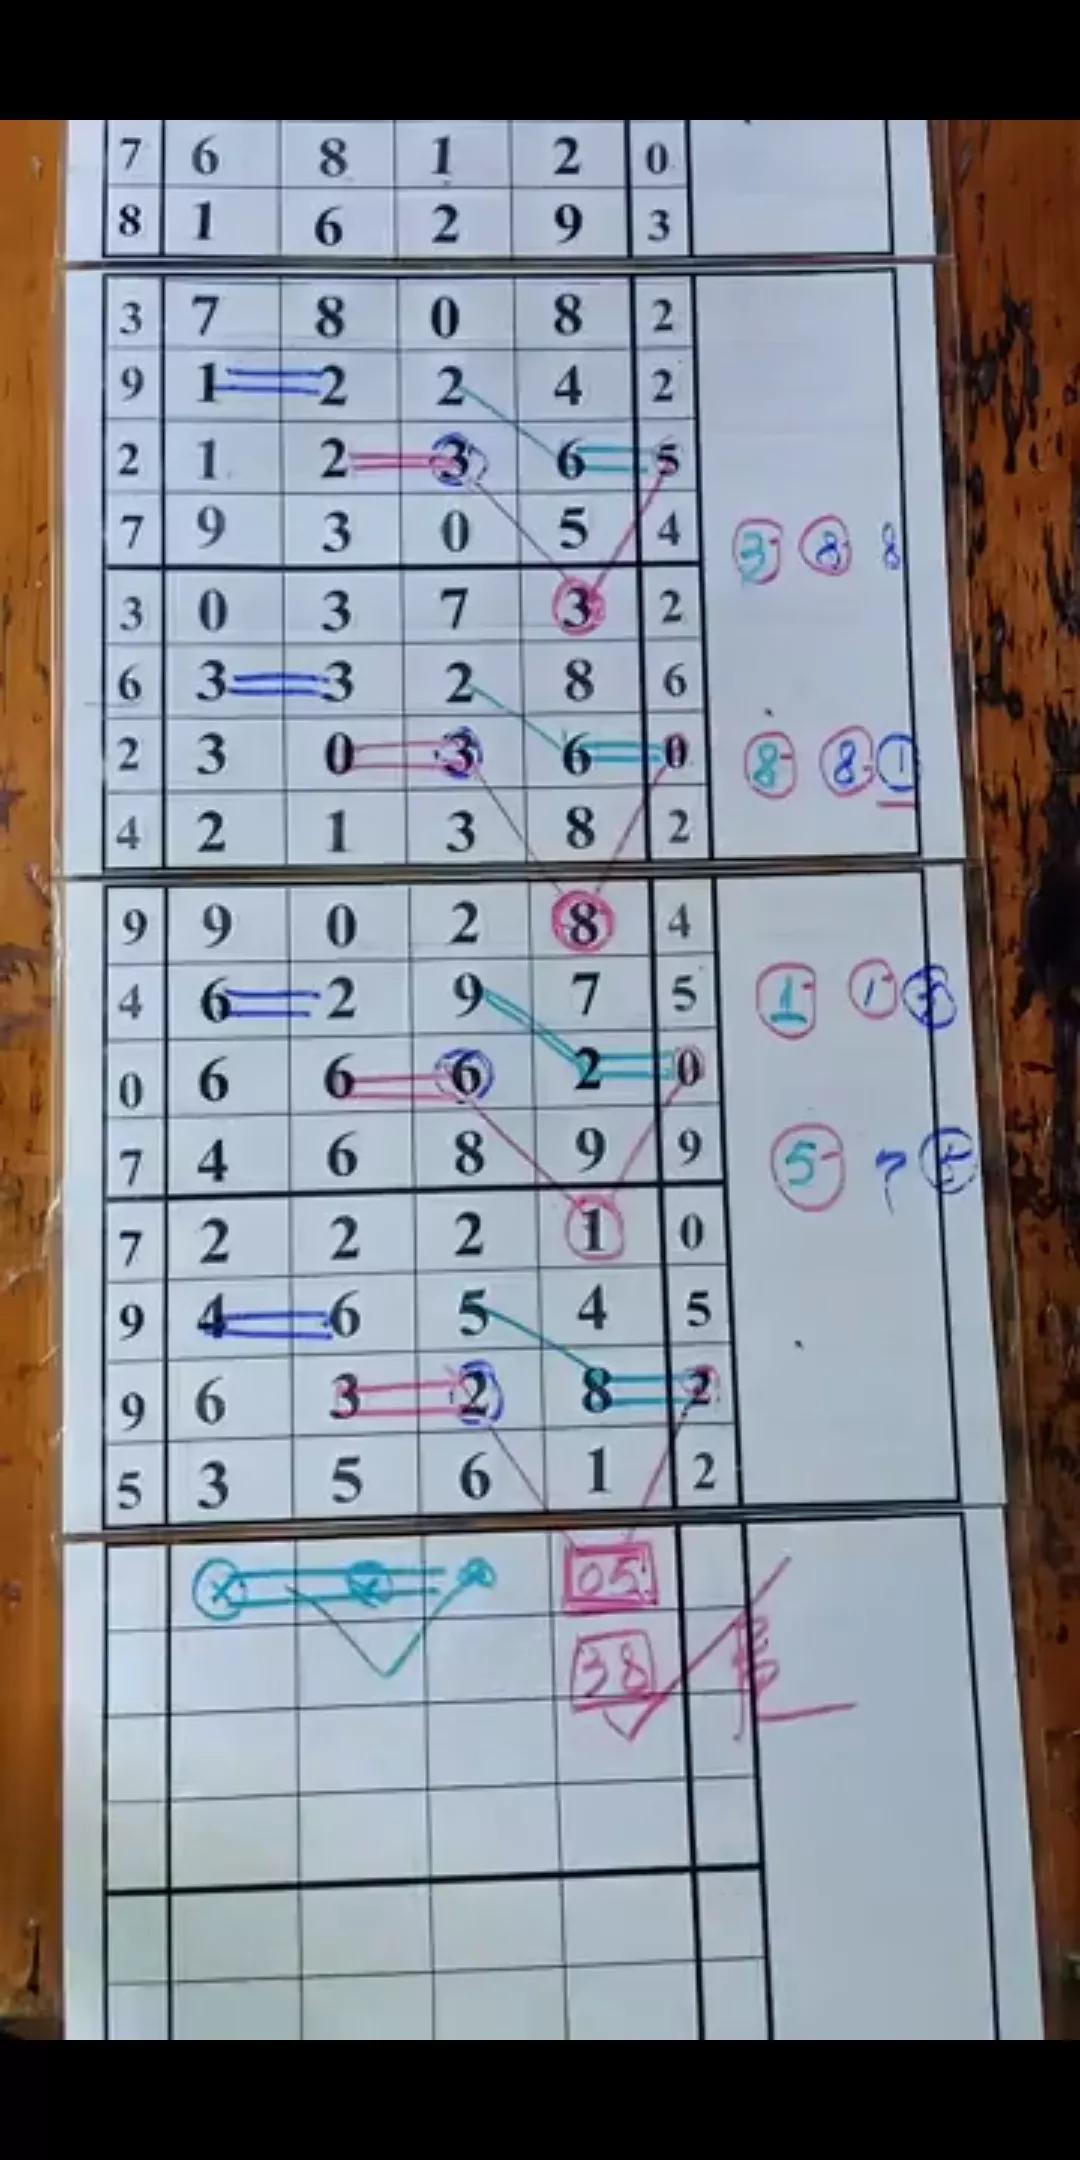 7 6 8 1 2 0
8 1 6 2 9 3
3 7 8 0 8 2
9 1 2 2 4 2
2 1 2 3 6 5
7 9 3 0 5 4 3 8 8
3 0 3 7 3 2
6 3 3 2 8 6
2 3 0 3 6 0 8 8 1
4 2 1 3 8 2
9 9 0 2 8 4
4 6 2 9 7 5 1 1
0 6 6 6 2 0
7 4 6 8 9 9 5 ?
7 2 2 2 1 0
9 4 6 5 4 5
9 6 3 2 8 2
5 3 5 6 1 2
x x 05
38